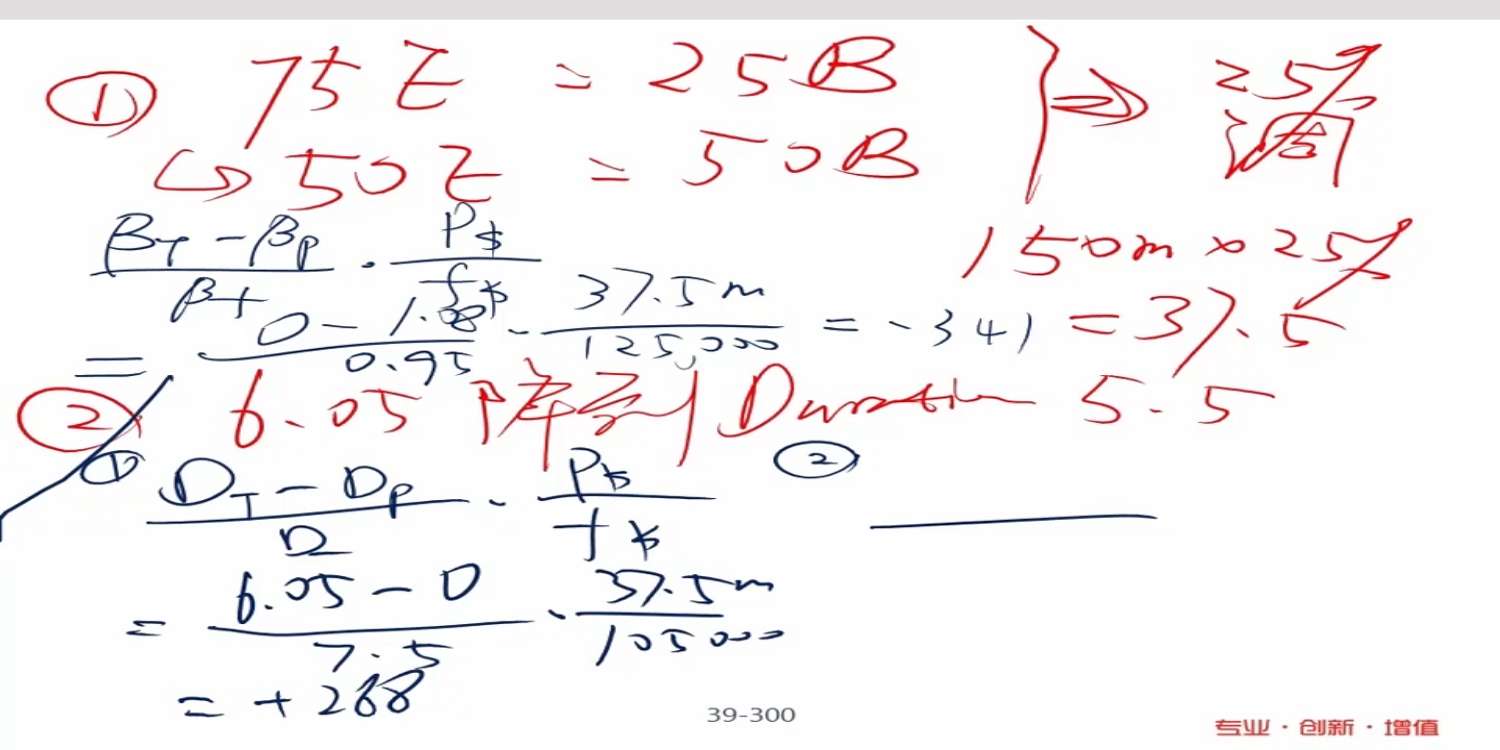 ① 75E = 25B
↳ 50E = 50B } ⇒ 25% 调
(βT - βP)/βf · P$/f$
150m × 25%
= (0 - 1.08)/0.95 · 37.5m/125,000 = -341
= 37.5
② 6.05 降到 Duration 5.5
① (DT - DP)/D · P$/f$
②
= (6.05 - 0)/7.5 · 37.5m/105000
= +288
39-300
专业·创新·增值